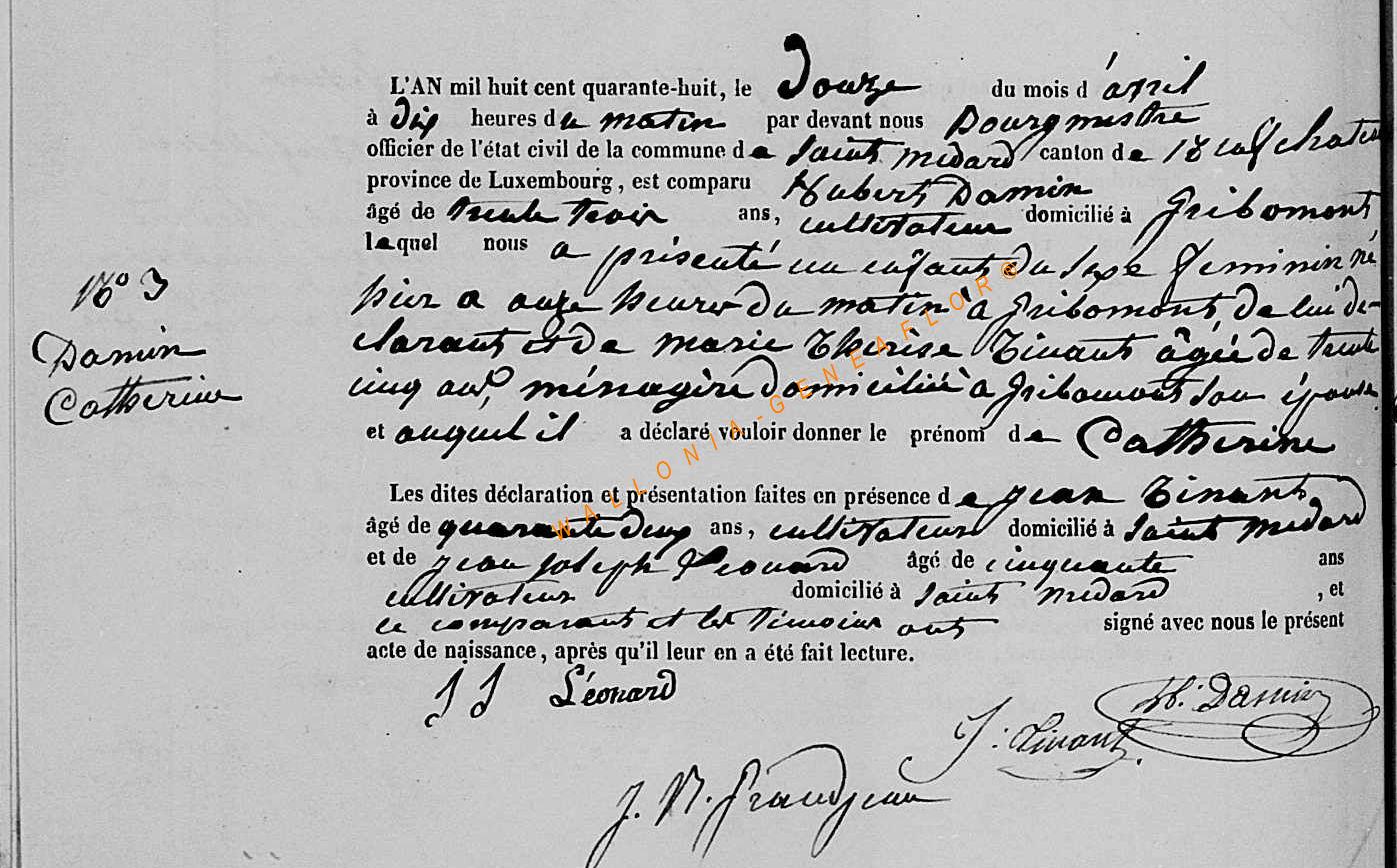 L'AN mil huit cent quarante-huit, le Douze du mois d'avril
à Dix heures du matin par devant nous Bourgmestre
officier de l'état civil de la commune de Saint Medard canton de Neufchateau
province de Luxembourg, est comparu Hubert Damin
âgé de trente trois ans, cultivateur domicilié à Gribomont
lequel nous a présenté un enfant du sexe feminin né
hier a onze heures du matin à Gribomont de lui dé-
clarant et de marie Thérèse Tinant âgée de trente
cinq ans, ménagère domiciliée à Gribomont son épouse
et auquel il a déclaré vouloir donner le prénom de Catherine
N° 3
Damin
Catherine
Les dites déclaration et présentation faites en présence de jean Tinant
âgé de quarante deux ans, cultivateur domicilié à Saint Medard
et de jean joseph Léonard âgé de cinquante ans
cultivateur domicilié à Saint Medard , et
le comparant et les témoins ont signé avec nous le présent
acte de naissance, après qu'il leur en a été fait lecture.
J J Léonard
H. Damin
J. Tinant
J. N. Grandjean
WALLONIA-GENEAFLOR©